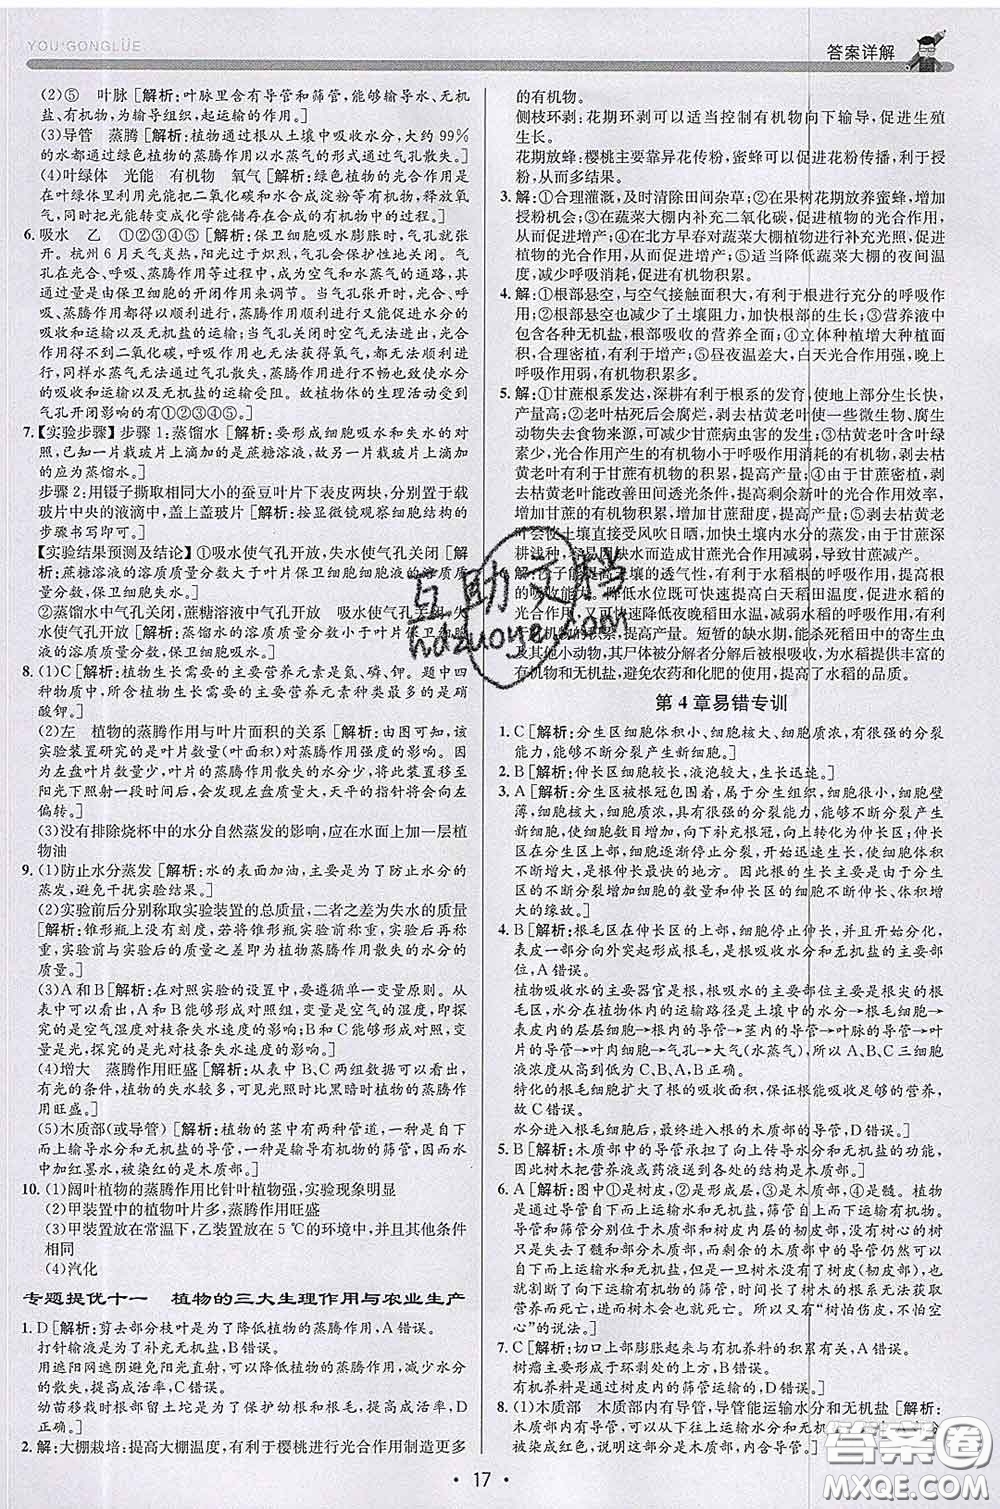 YOU GONGLÜE
答案详解
(2)⑤ 叶脉 [解析:叶脉里含有导管和筛管,能够输导水、无机
盐、有机物,为输导组织,起运输的作用。]
(3)导管 蒸腾 [解析:植物通过根从土壤中吸收水分,大约 99%
的水都通过绿色植物的蒸腾作用以水蒸气的形式通过气孔散失。]
(4)叶绿体 光能 有机物 氧气 [解析:绿色植物的光合作用是
叶绿体里利用光能把二氧化碳和水合成淀粉等有机物,释放氧气,
同时把光能转变成化学能储存在合成的有机物中的过程。]
6. 吸水 乙 ①②③④⑤ [解析:保卫细胞吸水膨胀时,气孔就
张开。杭州 6 月天气炎热,阳光过于炽烈,气孔会保护性地关闭。气
孔在光合、呼吸、蒸腾作用等过程中,是气体和水蒸气的通路,其
启闭是由保卫细胞的开闭作用来调节。当气孔张开时,气体和水分
的出入都得以顺利进行,蒸腾作用也得以顺利进行,从而促进水分
的吸收和运输以及无机盐的运输;当气孔关闭时空气无法进出,光合
作用得不到二氧化碳、呼吸作用也无法获得氧气,都无法顺利进
行,水分也不能顺利通过气孔散失,蒸腾作用不畅也致使水分
的吸收和运输以及无机盐的运输受阻。故植物体的生理活动受到
气孔开闭影响的有①②③④⑤。]
7.【实验步骤】步骤 1:蒸馏水 [解析:要形成细胞吸水和失水的对
照,因为一个载玻片上滴加的是蔗糖溶液,故另一个载玻片上滴加
的应为蒸馏水。]
步骤 2:用镊子撕取相同大小的蚕豆叶片下表皮两块,分别置于载
玻片中央的液滴中,盖上盖玻片 [解析:按显微镜观察细胞结构的
步骤书写即可。]
【实验结果预测及结论】①吸水使气孔开放,失水使气孔关闭 [解
析:蔗糖溶液的溶质质量分数大于叶片保卫细胞细胞液的溶质
质量分数,保卫细胞失水。]
②蒸馏水中气孔关闭,蔗糖溶液中气孔开放 吸水使气孔关闭,失
水使气孔开放 [解析:蒸馏水的溶质质量分数小于叶片保卫细胞
液的溶质质量分数,保卫细胞吸水。]
8. (1)C [解析:植物生长需要的营养元素是氮、磷、钾。题中四
种物质中,所含植物生长需要的营养元素种类最多的是硝
酸钾。]
(2)左 植物的蒸腾作用与叶片面积的关系 [解析:由图可知,该
实验装置是以叶片数量(叶面积)对蒸腾作用强度的影响。因
为左盘叶片数量少,叶片的蒸腾作用散失的水分少,将装置移至
阳光下照射一段时间后,会发现左盘质量大,天平的指针将会向左
偏转。]
(3)没有排除烧杯中的水分自然蒸发的影响,应在水面上滴一层植
物油
9. (1)防止水分蒸发 [解析:水的表面加油,主要是为了防止水分的
蒸发,避免干扰实验结果。]
(2)实验前后分别称取实验装置的总质量,二者之差为失水的质量
[解析:锥形瓶上没有刻度,若将锥形瓶换为量筒,则实验效果更
明显,实验前与实验后的质量之差即为植物蒸腾作用散失的水分的
质量。]
(3)A 和 B [解析:在对照实验的设置中,要遵循单一变量原则。从
表中可以看出,A 和 B 能够形成对照,变量是空气湿度,因此探究的
是空气湿度对枝条失水速度的影响;B 和 C 能够形成对照,变量是
光照,探究的是光对枝条失水速度的影响。]
(4)增大 蒸腾作用旺盛 [解析:由表中 B、C 两组数据可以看出,
有光的条件,植物的失水较多,可见光照时比黑暗时植物的蒸腾作
用旺盛。]
(5)木质部(或导管) [解析:植物的茎中有两种管道,一种是自
下而上输导水分和无机盐的导管,一种是输导有机物的筛管,因此在水
中加红墨水,被染红的是木质部。]
10. (1)阔叶植物的蒸腾作用比针叶植物强,实验现象明显
(2)甲装置中的植物叶片多,蒸腾作用旺盛
(3)甲装置放在常温下,乙装置放在 5 ℃的环境中,并且其他条件
相同
(4)汽化
专题提优十一 植物的三大生理作用与农业生产
1. D [解析:剪去部分枝叶是为了降低植物的蒸腾作用,A 错误。
打针输液是为了补充无机盐,B 错误。
用遮阳网遮阴避免阳光直射,可以降低植物的蒸腾作用,减少水分
的散失,提高成活率,C 错误。
幼苗移栽时根部留土坨是为了保护幼根和根毛,提高成活率,D
正确。]
2. 解:大棚栽培:提高大棚温度,有利于樱桃进行光合作用制造更多
的有机物。
侧枝环剥:花期环剥可以适当控制有机物向下输导,促进生殖
生长。
花期放蜂:樱桃主要靠异花传粉,蜜蜂可以促进花粉传播,利于授
粉,从而多结果。
3. 解:①合理灌溉,及时清除田间杂草;②在果树花期放养蜜蜂,增加
授粉机会;③在蔬菜大棚内补充二氧化碳,促进植物的光合作用,
从而增产;④在北方早春对蔬菜大棚植物进行补充光照,促进植
物的光合作用,从而增产;⑤适当降低蔬菜大棚的夜间温
度,减少呼吸消耗,促进有机物积累。
4. 解:①根部悬空,与空气接触面积大,有利于根进行充分的呼吸作
用;②根部悬空,减少了土壤阻力,加快根的生长速度;③营养液
中包含各种无机盐,根部吸收的营养全面;④立体种植增大种植面
积,合理密植,有利于增产;⑤昼夜温差大,白天光合作用强,晚上
呼吸作用弱,有机物积累多。
5. 解:①甘蔗根系发达,深耕有利于根系的发育,使地上部分生长快,
产量高;②老叶枯死后会腐烂,剥去枯黄老叶可使一些微生物、腐生
动物失去生存场所,可减少甘蔗病虫害的发生;③枯黄老叶含叶绿
素少,光合作用产生的有机物小于呼吸作用消耗的有机物,剥去枯
黄老叶有利于甘蔗有机物的积累,提高产量;④由于甘蔗密植,剥
去枯黄老叶能改善田间透光条件,提高剩余新叶的光合作用效率,
增加有机物积累,增加甘蔗甜度,提高产量;⑤剥去枯黄老叶,甘
蔗会使土壤直接受风吹日晒,加快土壤内水分的蒸发,由于甘蔗深
耕浅种,容易因缺水而造成甘蔗光合作用减弱,导致减产。
解:沙子能提高土壤的透气性,有利于水稻根
的呼吸作用,从而促进根的生长和对无机盐的吸收,促进水稻的
光合作用,又可快速降低夜晚稻田水温,减弱水稻的呼吸作用,有利
于有机物的积累,提高产量。短暂的缺水期,能杀死稻田中的寄生虫
及其他小动物,其尸体被分解者分解后,又能为水稻提供丰富的
有机物和无机盐,避免农药和化肥的使用,提高了水稻的品质。
第 4 章易错专训
1. C [解析:分生区细胞体积小、细胞核大、细胞质浓,有很强的分裂
能力,能够不断分裂产生新细胞。]
2. B [解析:伸长区细胞较长,液泡较大,生长迅速。]
3. A [解析:分生区被根冠包围着,属于分生组织,细胞小、细胞壁
薄、细胞核大、细胞质浓,具有很强的分裂能力,能够不断分裂产生
新细胞,使细胞数目增多,向下补充根冠,向上转化为伸长区;伸长
区在分生区上部,细胞逐渐停止分裂,开始迅速伸长,是根
伸长最快的地方,是根伸长最快的地方。因此,根能不断地长长
是由于分生区细胞的数量和伸长区的细胞体积不断
增大的缘故。]
4. B [解析:根毛区在伸长区的上部,细胞停止伸长,并且开始分化,
表皮一部分向外突起形成根毛,是吸收水分和无机盐的主要部
位,A 错误。
植物吸收水的主要器官是根,根吸水的主要部位是根尖的根
毛区,水分在植物体内的运输路径是:土壤中的水分→根毛细胞→
表皮内的层层细胞→根内的导管→茎内的导管→叶脉的导管→叶
肉的导管→叶肉细胞→气孔→大气(水蒸气)。所以 A、B、C 处细胞
液浓度从高到低为 C,B,A,B 正确。
特化的根毛细胞扩大了根的吸收面积,保证根能吸收足够的营养,
故 C 错误。
水分进入根后,最后进入的是根中木质部的导管中,D 错误。]
5. B [解析:根中木质部的导管承担着向上传导水分和无机盐的功
能,因此把营养液或药液送到各处的结构是导管。]
6. A [解析:图中①是树皮,②是形成层,③是木质部,④是髓,树木
主要通过自下而上运输水和无机盐,自上而下运输有机物。
导管和筛管分别位于茎的木质部和树皮内层的韧皮部。大树空心
是失去了髓和部分木质部,还有一部分木质部,木质部内的导管照
样能够输送水和无机盐,所以树照样可以存活。树皮(韧皮部),
就割断了向下运输有机物的筛管,时间一长,树木的根系无法获得
有机营养而死亡,树木也会因此死亡。所以又有“树怕伤皮,不怕空
心”的说法。]
7. C [解析:切口上部膨胀起来与有机养料的积累有关,A 错误。
树瘤主要是形成于环剥的上方,B 错误。
有机养料是通过树皮内的筛管运输的,C 正确。]
8. (1)木质部 木质部内有导管,导管能运输水分和无机盐 [解析:
17
互助文档
hdzuoye.com
答案圈
MXQE.COM